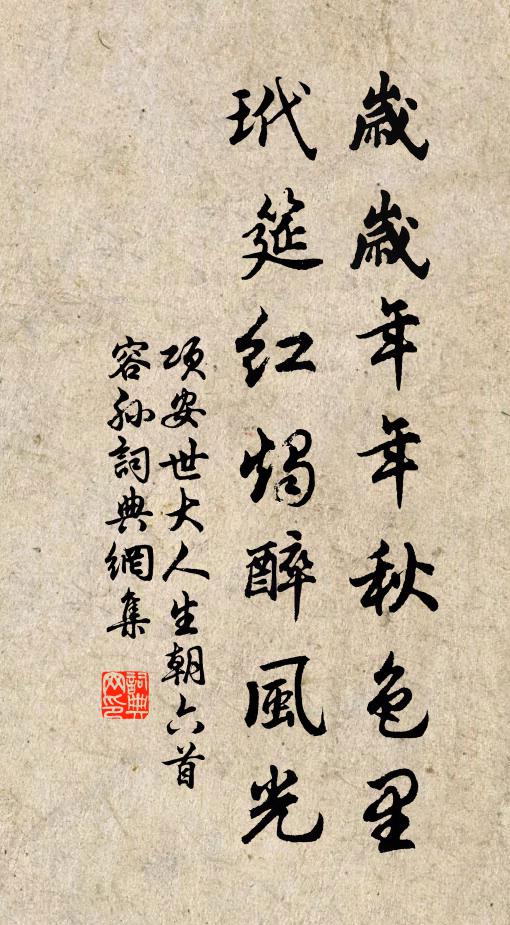 歲歲年年秋色里
玳筵紅燭醉風光
項安世大人生朝六首
容孫詞典網集
詞典網印